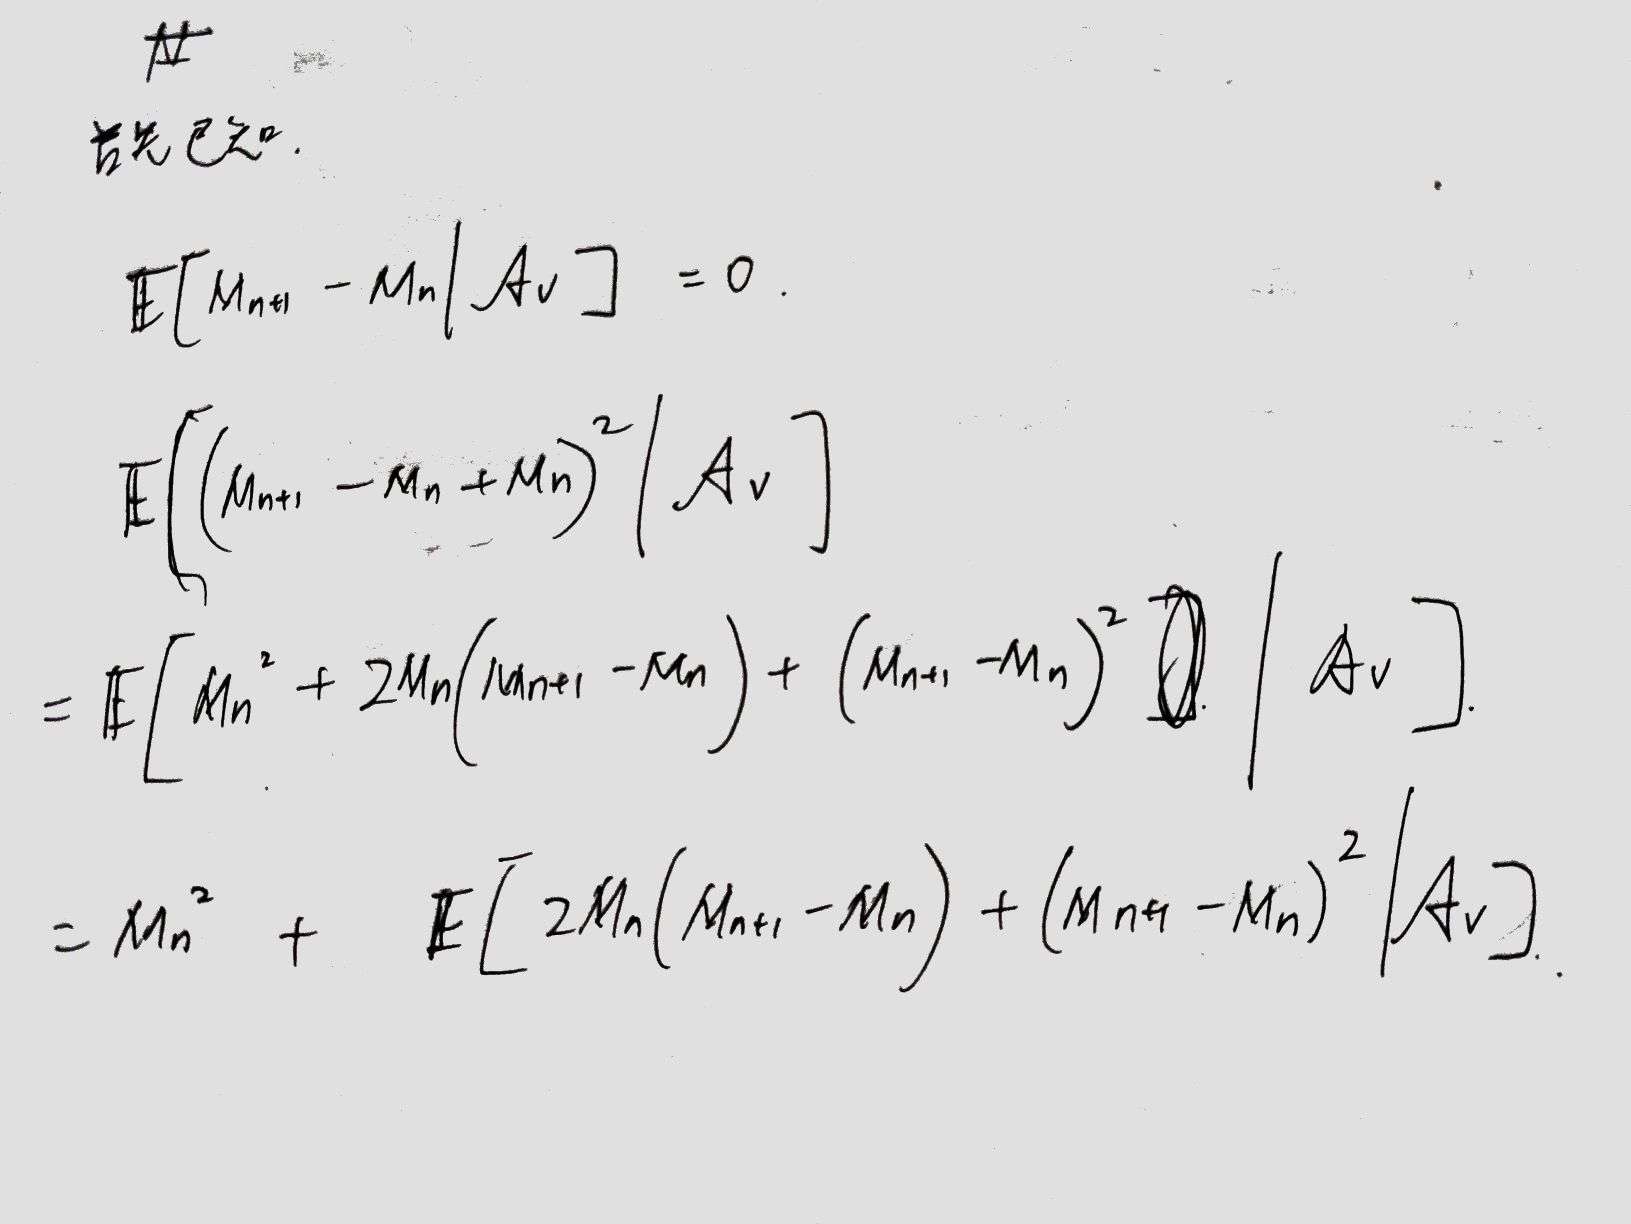 首先已知.
𝔼[M_{n+1} - M_n | 𝒜_v] = 0.
𝔼[(M_{n+1} - M_n + M_n)^2 | 𝒜_v]
= 𝔼[M_n^2 + 2M_n(M_{n+1} - M_n) + (M_{n+1} - M_n)^2 | 𝒜_v].
= M_n^2 + 𝔼[2M_n(M_{n+1} - M_n) + (M_{n+1} - M_n)^2 | 𝒜_v].